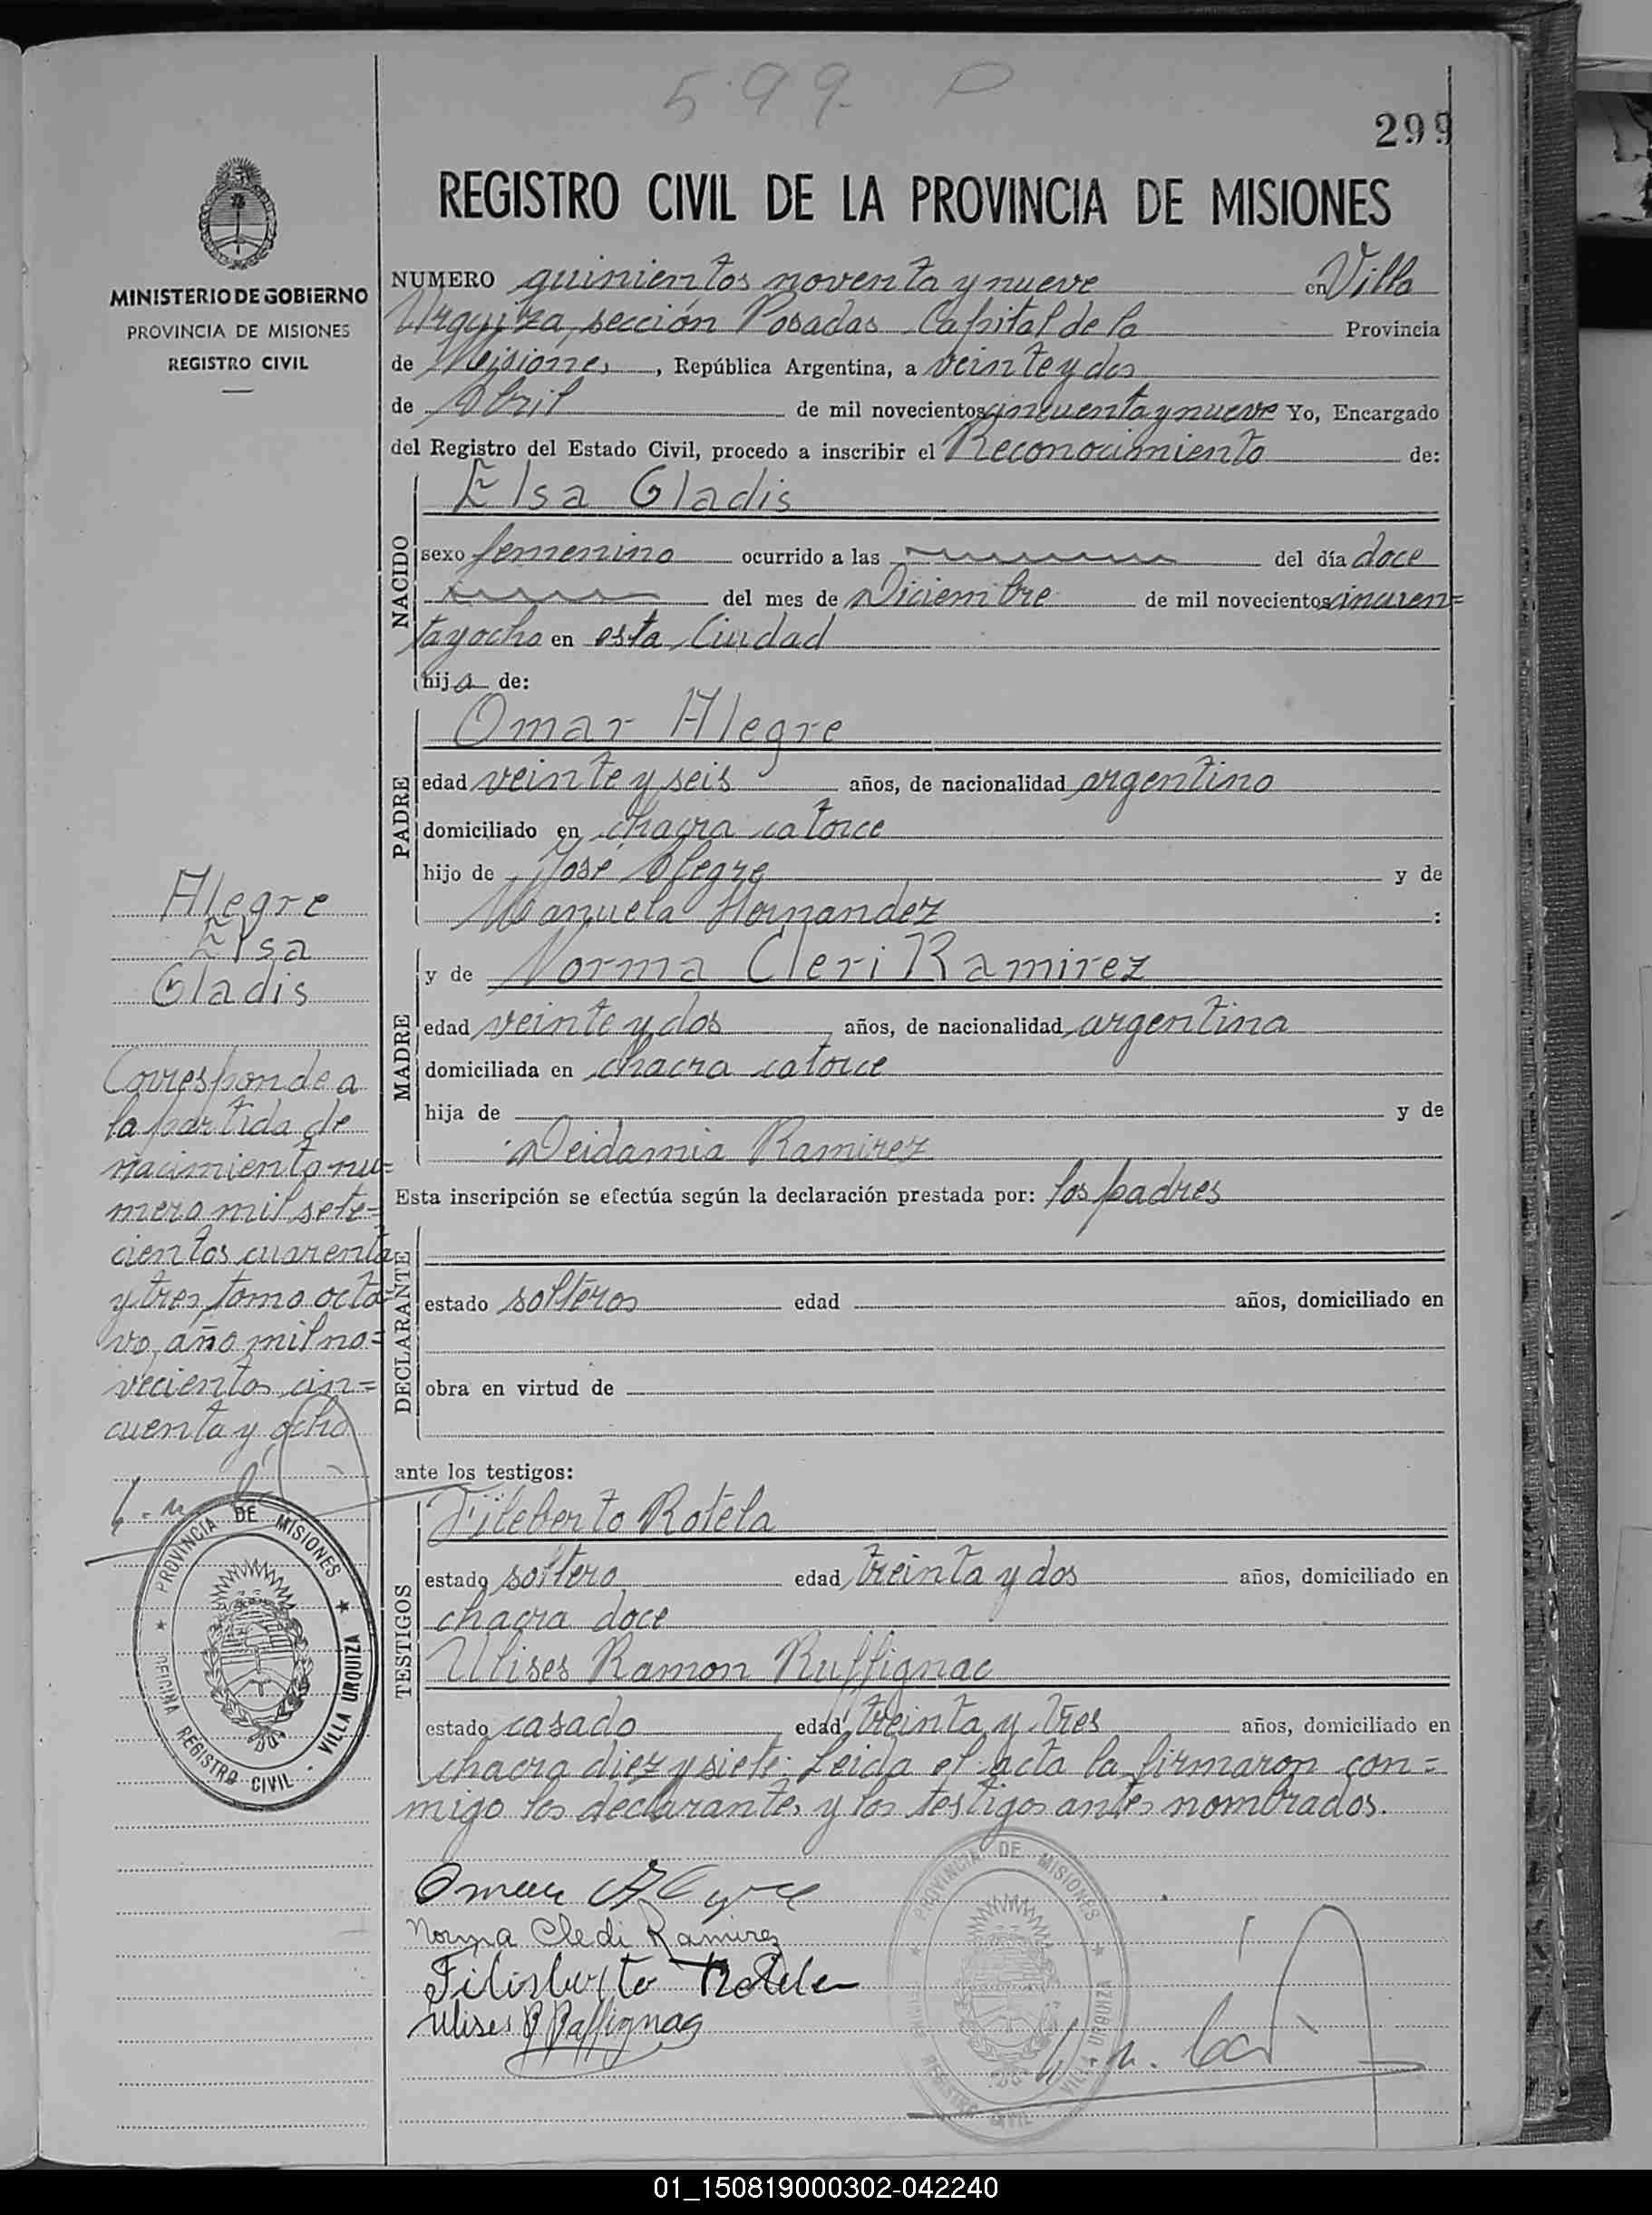 599.
299
REGISTRO CIVIL DE LA PROVINCIA DE MISIONES
MINISTERIO DE GOBIERNO
PROVINCIA DE MISIONES
REGISTRO CIVIL
NUMERO quinientos noventa y nueve en Villa
Urquiza, sección Posadas Capital de la Provincia
de Misiones, República Argentina, a veinte y dos
de Abril de mil novecientos cincuenta y nueve Yo, Encargado
del Registro del Estado Civil, procedo a inscribir el Reconocimiento de:
NACIDO
Elsa Gladis
sexo femenino ocurrido a las del día doce
del mes de Diciembre de mil novecientos cincuen=
ta y ocho en esta Ciudad
hija de:
PADRE
Omar Alegre
edad veinte y seis años, de nacionalidad argentino
domiciliado en chacra catorce
hijo de José Alegre y de
Manuela Hernandez :
MADRE
y de Norma Cleri Ramirez
edad veinte y dos años, de nacionalidad argentina
domiciliada en chacra catorce
hija de y de
Deidamia Ramirez
Esta inscripción se efectúa según la declaración prestada por: los padres
DECLARANTE
estado solteros edad años, domiciliado en
obra en virtud de
ante los testigos:
TESTIGOS
Fileberto Rotela
estado soltero edad treinta y dos años, domiciliado en
chacra doce
Ulises Ramon Ruffignac
estado casado edad treinta y tres años, domiciliado en
chacra diez y siete: Leida el acta la firmaron con=
migo los declarantes y los testigos antes nombrados.
Omar Alegre
Norma Cledi Ramirez
Filisberto Rotela
Ulises R Raffignag
Alegre
Elsa
Gladis
Corresponde a
la partida de
nacimiento nu=
mero mil sete=
cientos cuarenta
y tres, tomo octa=
vo, año mil no=
vecientos cin=
cuenta y ocho
PROVINCIA DE MISIONES
OFICINA REGISTRO CIVIL · VILLA URQUIZA
PROVINCIA DE MISIONES
OFICINA REGISTRO CIVIL VILLA URQUIZA
01_150819000302-042240